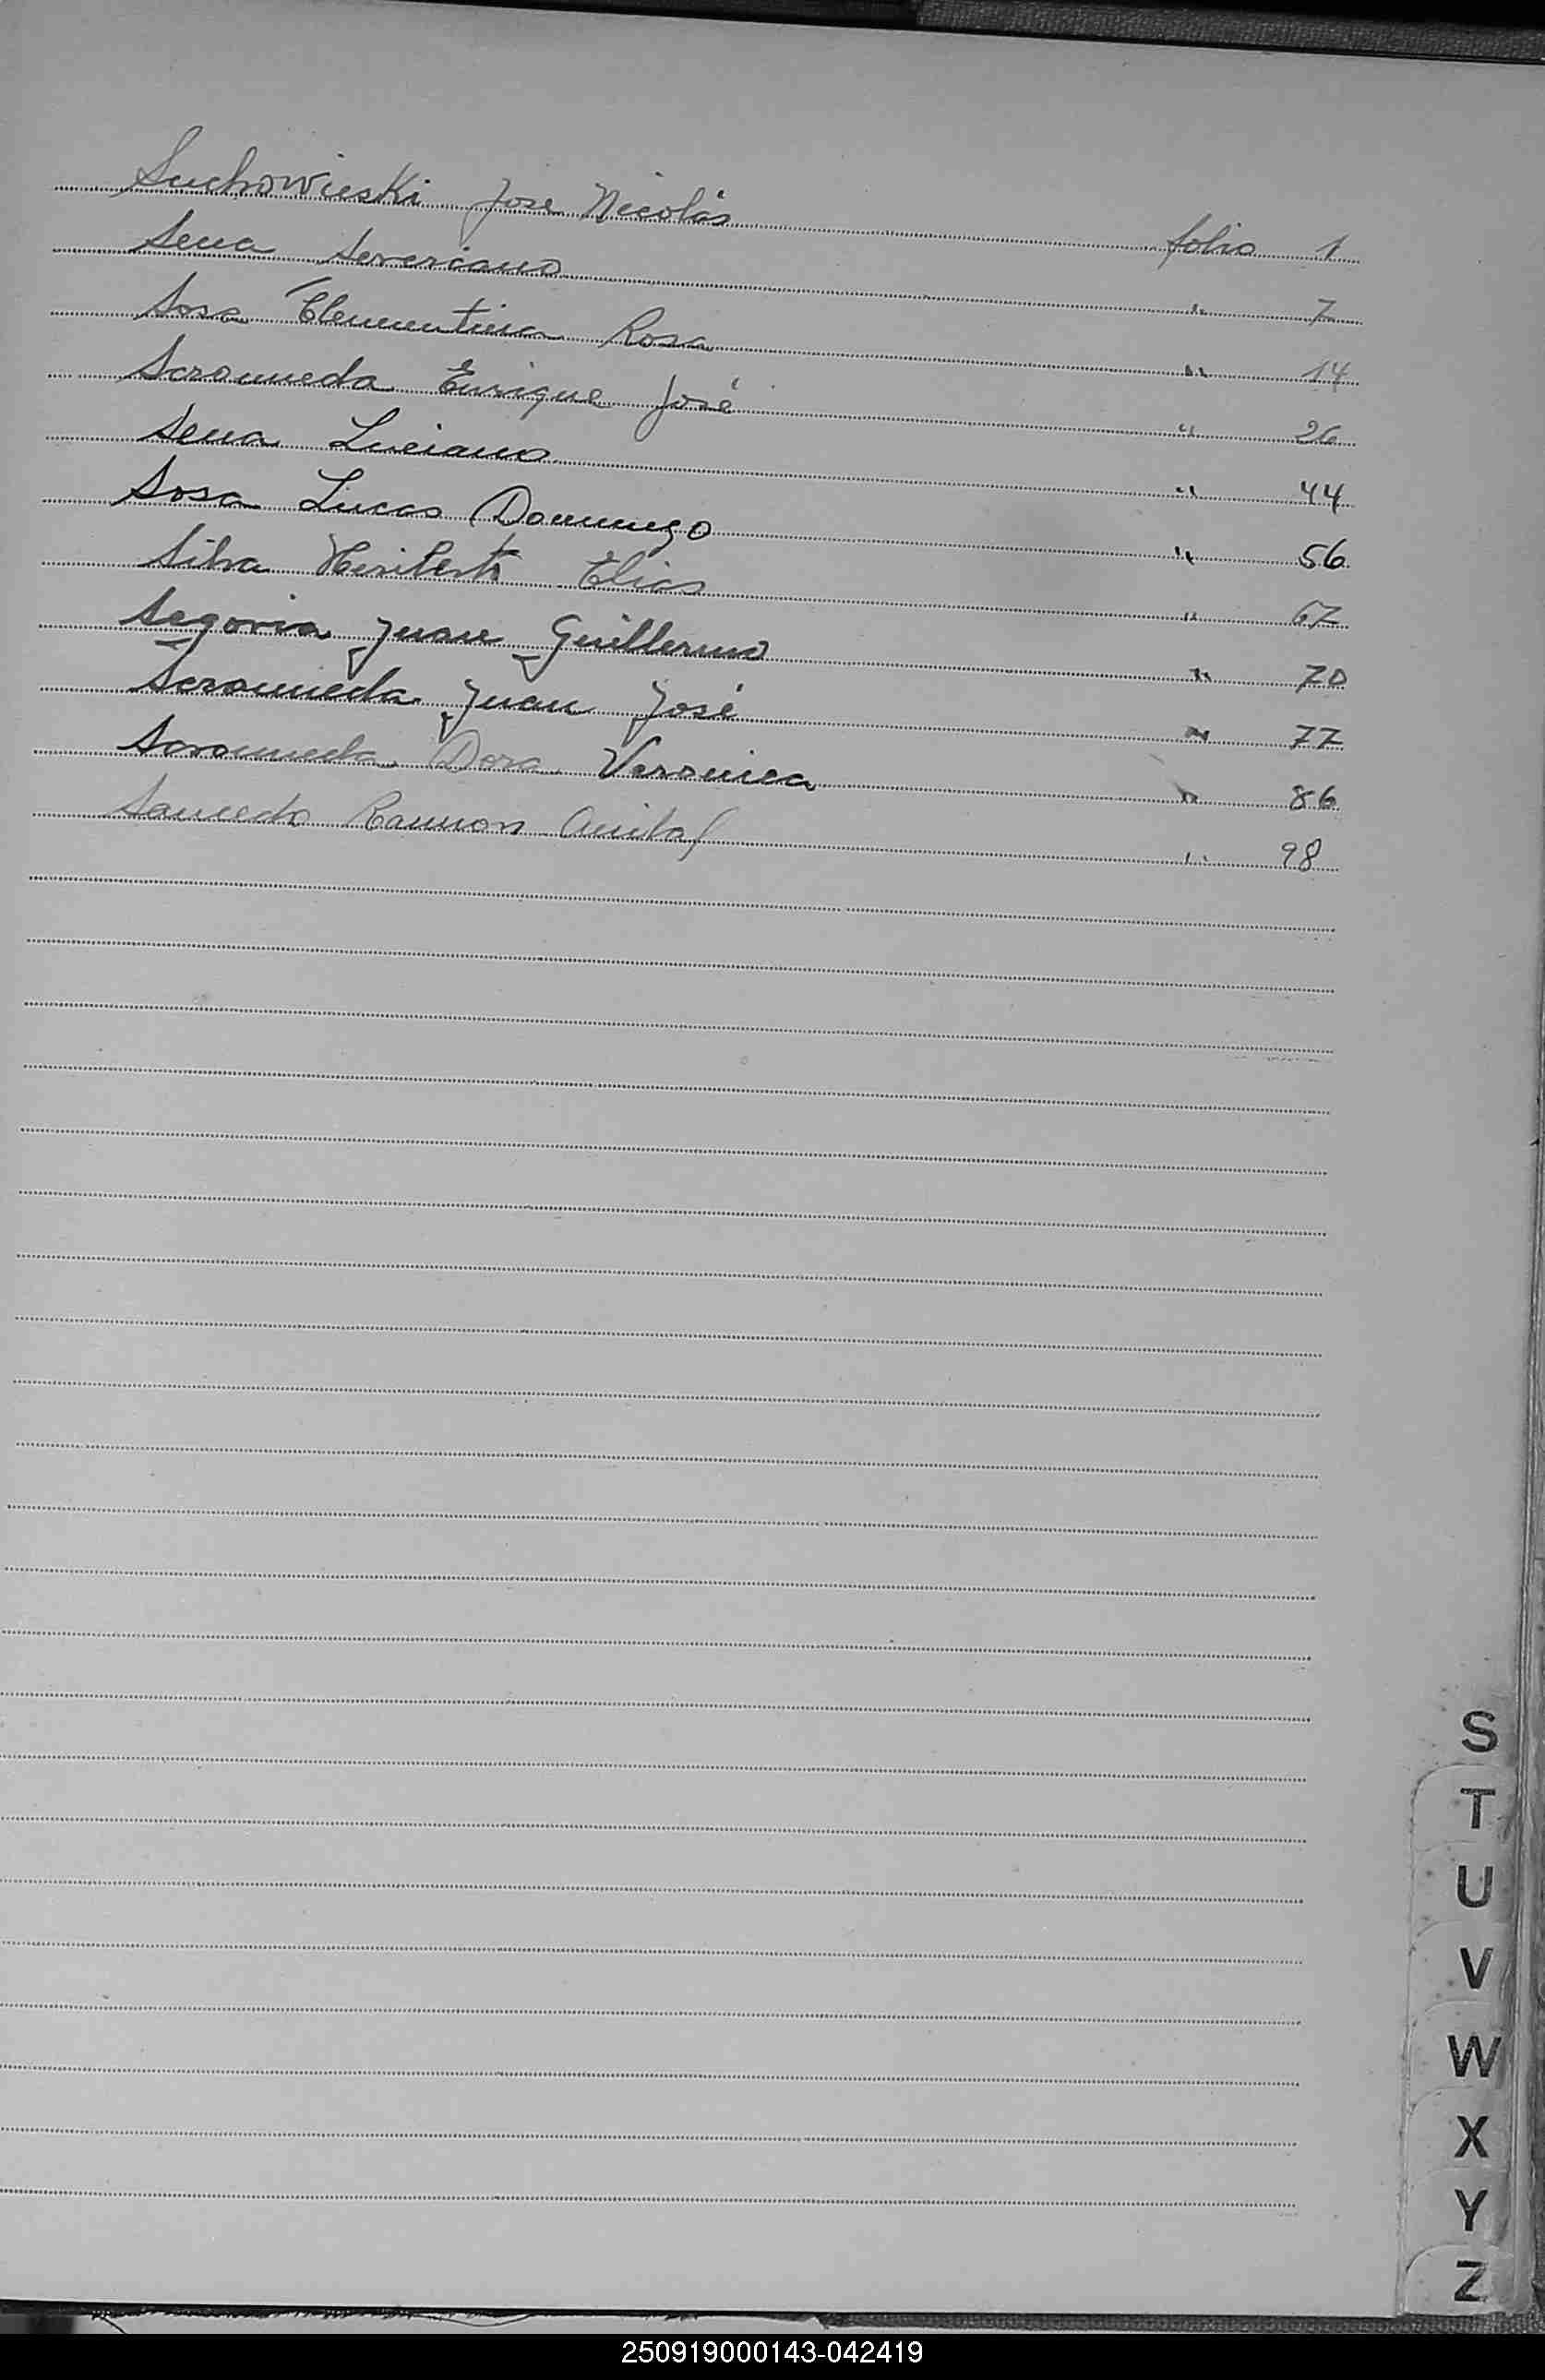 Suchowieski Jose Nicolás folio 1
Sena Severiano " 7
Sosa Clementina Rosa " 14
Scromeda Enrique José " 26
Sena Luciano " 44
Sosa Lucas Domingo " 56
Silva Heriberto Elias " 67
Segovia Juan Guillermo " 70
Scromeda Juan José " 77
Scromeda Dora Veronica " 86
Saucedo Ramon " 98
S
T
U
V
W
X
Y
Z
250919000143-042419